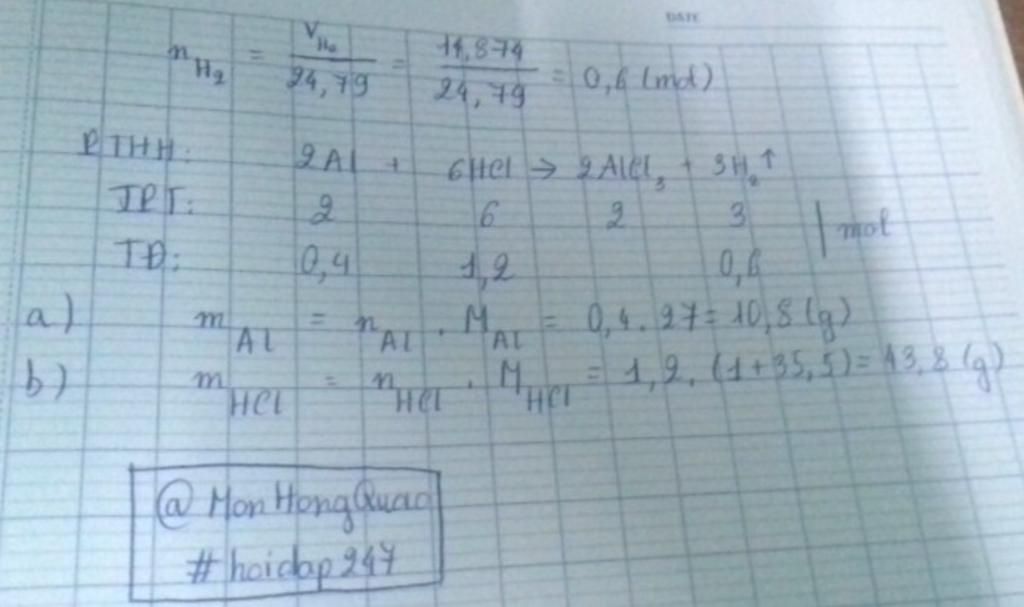 DATE
n_H₂ = V_H₂ / 24,79 = 14,874 / 24,79 = 0,6 (mol)
PTHH: 2Al + 6HCl → 2AlCl₃ + 3H₂↑
TPT: 2 6 2 3 | mol
TĐ: 0,4 1,2 0,6
a) m_Al = n_Al . M_Al = 0,4 . 27 = 10,8 (g)
b) m_HCl = n_HCl . M_HCl = 1,2 . (1+35,5) = 43,8 (g)
@MonHongQuao
#hoidap247